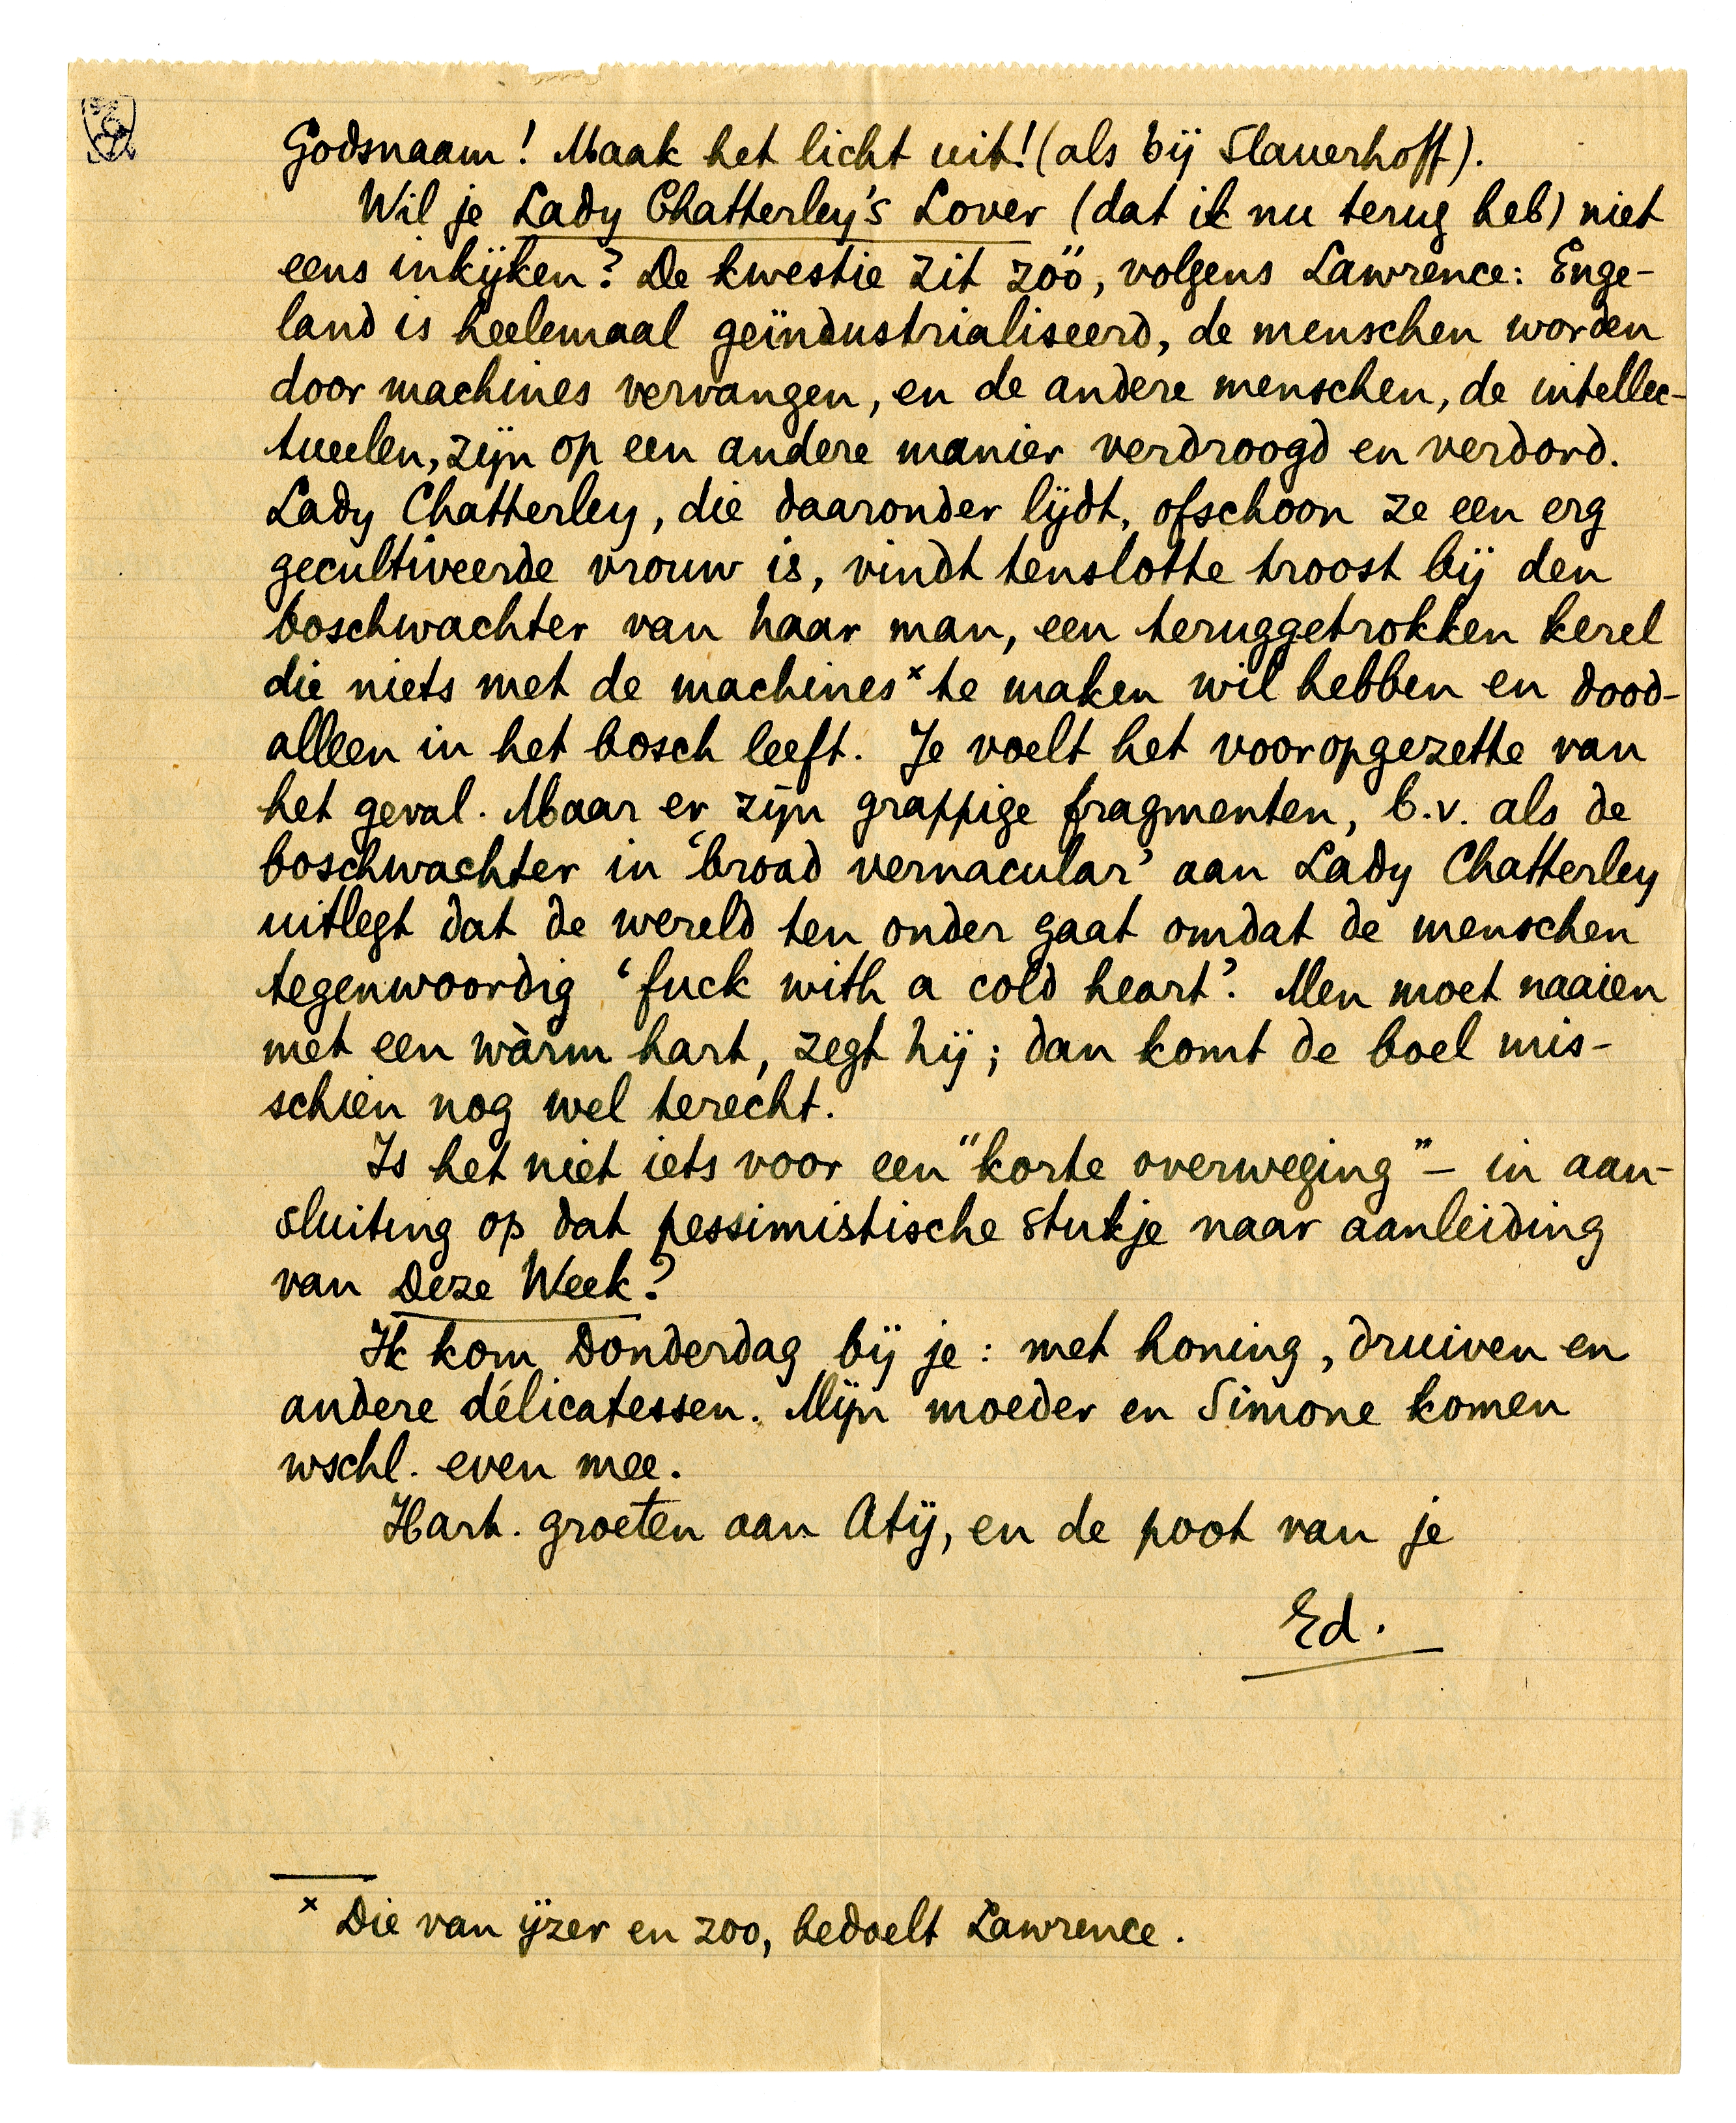 Godsnaam! Maak het licht uit! (als bij Slauerhoff).
Wil je Lady Chatterley's Lover (dat ik nu terug heb) niet
eens inkijken? De kwestie zit zóó, volgens Lawrence: Enge-
land is heelemaal geïndustrialiseerd, de menschen worden
door machines vervangen, en de andere menschen, de intellec-
tueelen, zijn op een andere manier verdroogd en verdord.
Lady Chatterley, die daaronder lijdt, ofschoon ze een erg
gecultiveerde vrouw is, vindt tenslotte troost bij den
boschwachter van haar man, een teruggetrokken kerel
die niets met de machines x te maken wil hebben en dood-
alleen in het bosch leeft. Je voelt het vooropgezette van
het geval. Maar er zijn grappige fragmenten, b.v. als de
boschwachter in 'broad vernacular' aan Lady Chatterley
uitlegt dat de wereld ten onder gaat omdat de menschen
tegenwoordig 'fuck with a cold heart'. Men moet naaien
met een wàrm hart, zegt hij; dan komt de boel mis-
schien nog wel terecht.
Is het niet iets voor een "korte overweging" - in aan-
sluiting op dat pessimistische stukje naar aanleiding
van Deze Week?
Ik kom Donderdag bij je: met honing, druiven en
andere délicatessen. Mijn moeder en Simone komen
wschl. even mee.
Hart. groeten aan Atij, en de poot van je
Ed.
x Die van ijzer en zoo, bedoelt Lawrence.